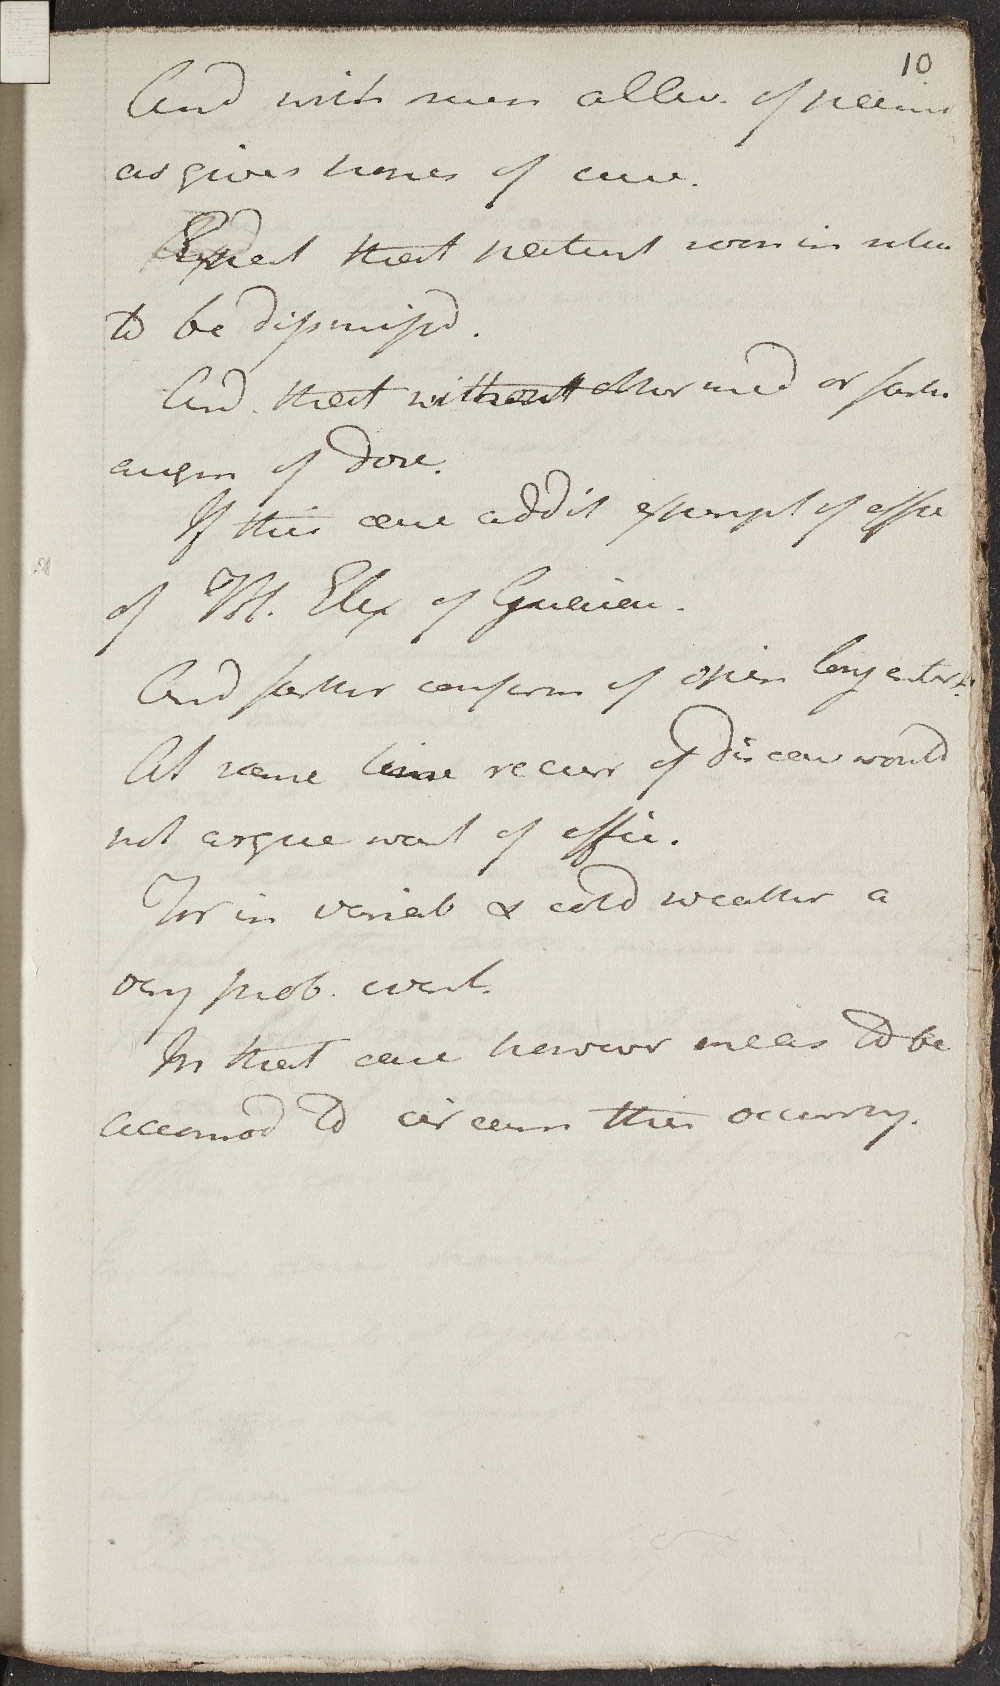 10
And with such allev. of pains
as gives hopes of cure.
Expect that patient soon in
to be dismissd.
And that without other med or farther
augm of dose.
If this case addit exempl of effic
of Vol. Elix of Guaiac.
And farther confirm of opin long entert.
At same time recurr of disease would
not argue want of effic.
For in variab & cold weather a
very prob. event.
In that case however meas to be
accomod to circum then occurring.